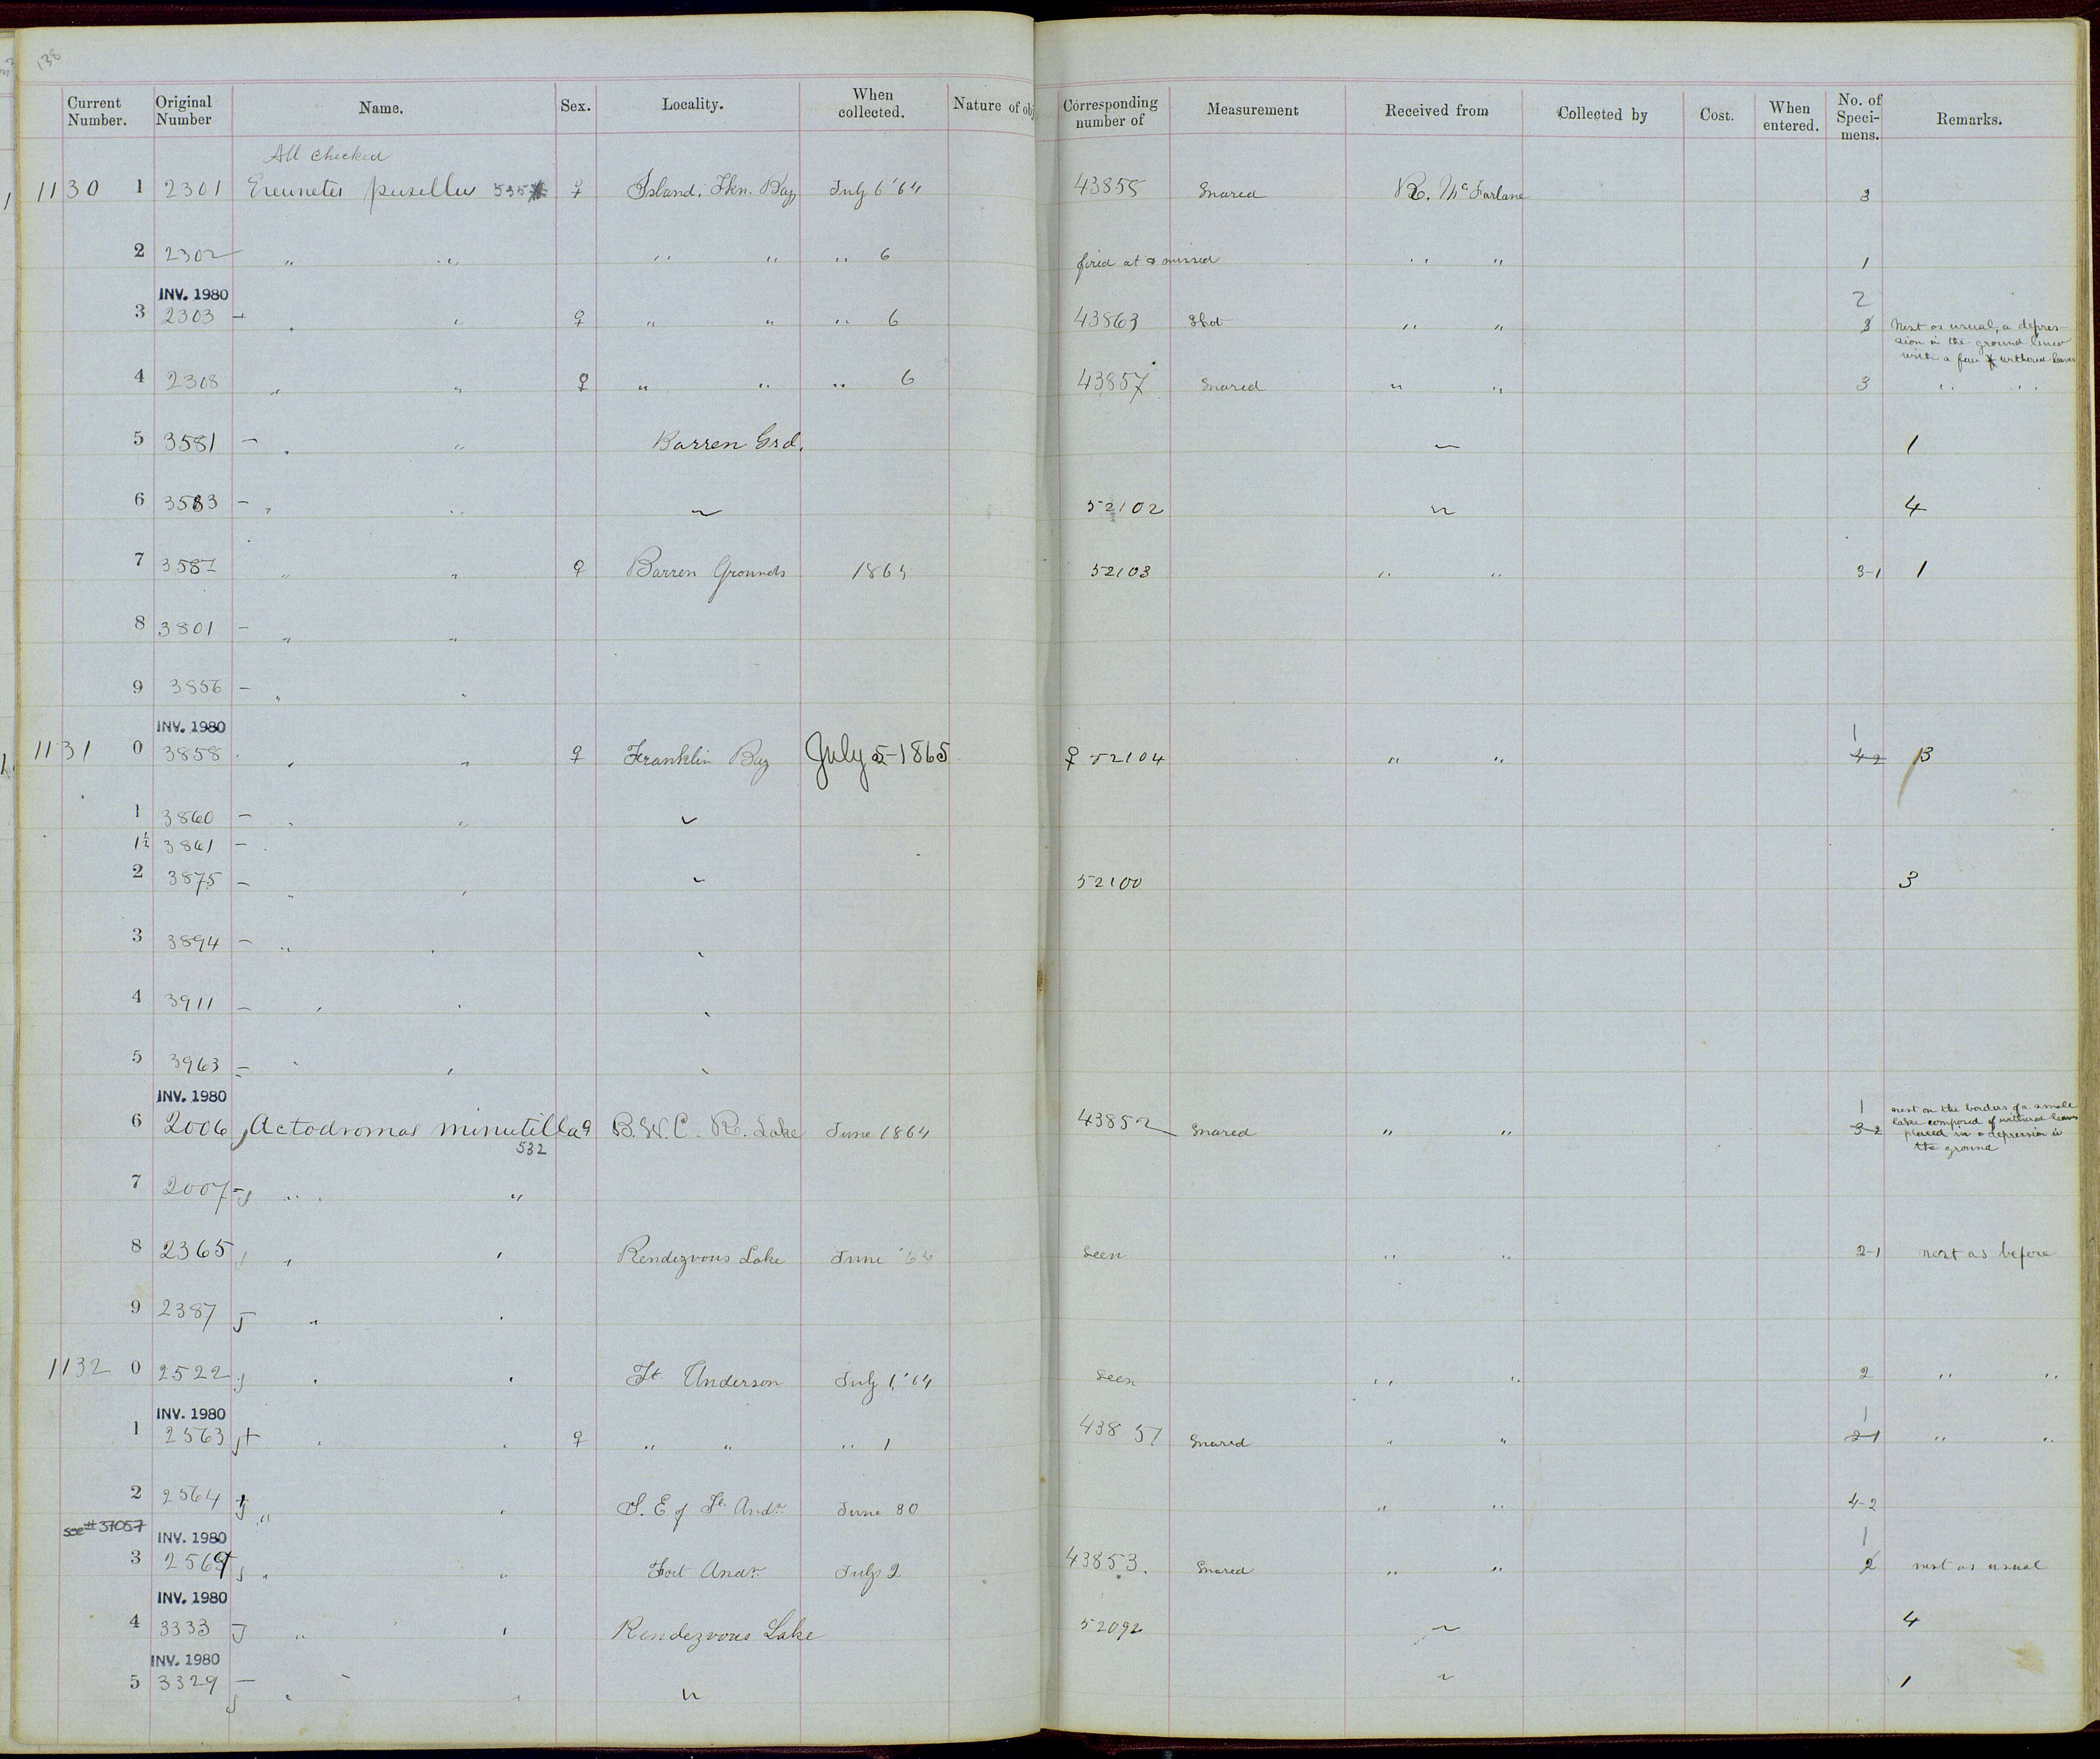 138
Current Number. Original Number Name. Sex. Locality. When collected. Nature of obj Corresponding number of Measurement Received from Collected by Cost. When entered. No. of Speci- mens. Remarks.
All checked
1130 1 2301 Ereunetes pusillus 535 ♀ Island, Fkn. Bay July 6 '64 43855 Snared R. McFarlane 3
2 2302 " " " " " 6 fired at & missed " " 1
INV. 1980 2
3 2303 - " " ♀ " " " 6 43863 Shot " " 3 Nest as usual, a depres-
sion in the ground lined
with a few withered leaves
4 2308 " " ♀ " " " 6 43857 Snared " " 3 " "
5 3581 - " " Barren Grd. " 1
6 3583 - " " " 52102 " 4
7 3587 " " ♀ Barren Grounds 1865 52103 " " 3-1 1
8 3801 - " "
9 3856 - " "
INV. 1980 1
1131 0 3858 " " ♀ Franklin Bay July 5-1865 ♀ 52104 " " 4-2 3
1 3860 - " " "
1½ 3861 - "
2 3875 - " " " 52100 3
3 3894 - " " "
4 3911 - " " "
5 3963 - " " "
INV. 1980 1 nest on the borders of a small
6 2006 Actodromas minutilla ♀ B.W.C. R. Lake June 1864 43852 Snared " " 3-2 lake composed of withered leaves
532 placed in a depression in
the ground
7 2007 - " "
8 2365 " " Rendezvous Lake June '64 Seen " " 2-1 nest as before
9 2387 " "
1132 0 2522 " " Ft. Anderson July 1, '64 Seen " " 2 " "
INV. 1980 1
1 2563 " " ♀ " " " 1 43851 Snared " " 2-1 " "
2 2564 " " S. E of Ft. Andn. June 30 " " 4-2
see # 37057 INV. 1980 1
3 2569 " " Fort Andn. July 2 43853. Snared " " 2 nest as usual
INV. 1980
4 3333 " " Rendezvous Lake 52092 " 4
INV. 1980
5 3329 - " " " " 1